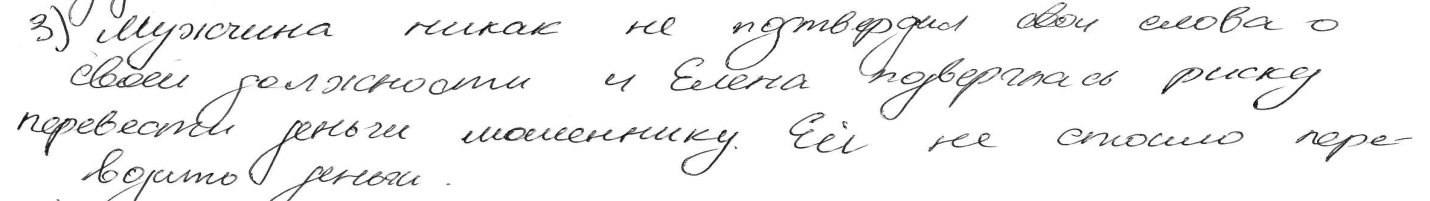 3) Мужчина никак не подтвердил свои слова о
своей должности и Елена подверглась риску
перевести деньги мошеннику. Ей не стоило пере-
водить деньги.